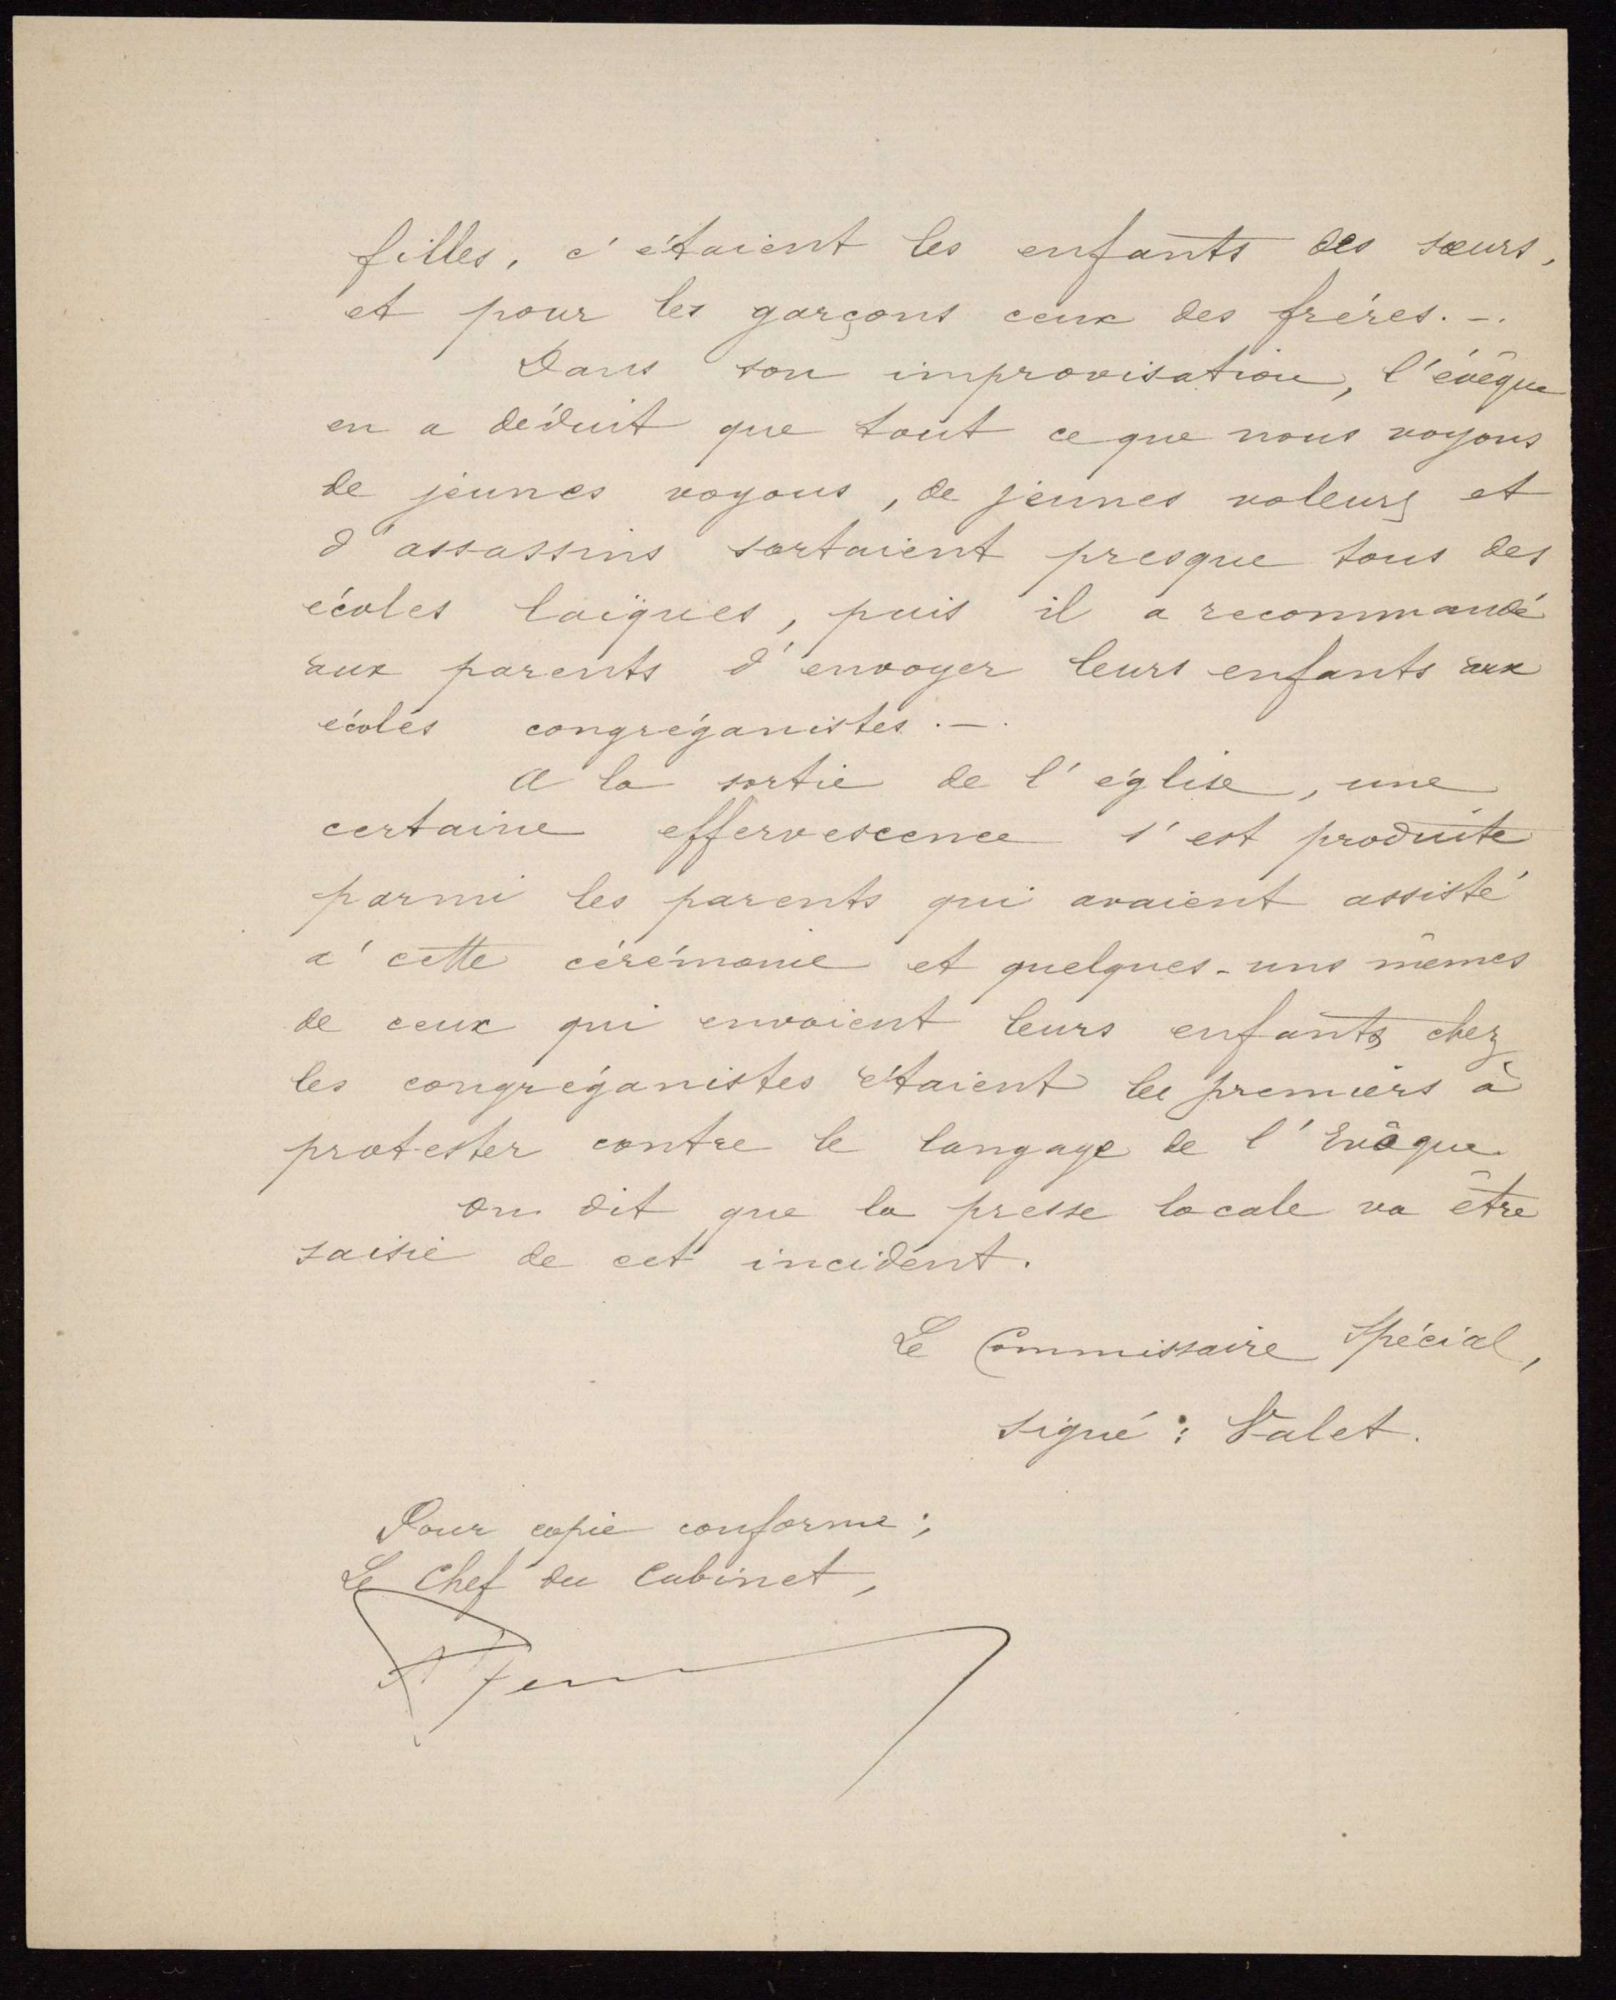 filles, c'étaient les enfants des sœurs,
et pour les garçons ceux des frères. -.
Dans son improvisation, l'évêque
en a déduit que tout ce que nous voyons
de jeunes voyous, de jeunes voleurs et
d'assassins sortaient presque tous des
écoles laïques, puis il a recommandé
aux parents d'envoyer leurs enfants aux
écoles congréganistes. -.
A la sortie de l'église, une
certaine effervescence s'est produite
parmi les parents qui avaient assisté
a' cette cérémonie et quelques-uns mêmes
de ceux qui envoient leurs enfants chez
les congréganistes étaient les premiers à
protester contre le langage de l'Evêque.
On dit que la presse locale va être
saisie de cet incident.
Le Commissaire Spécial,
signé : Valet.
Pour copie conforme ;
Le Chef du Cabinet,